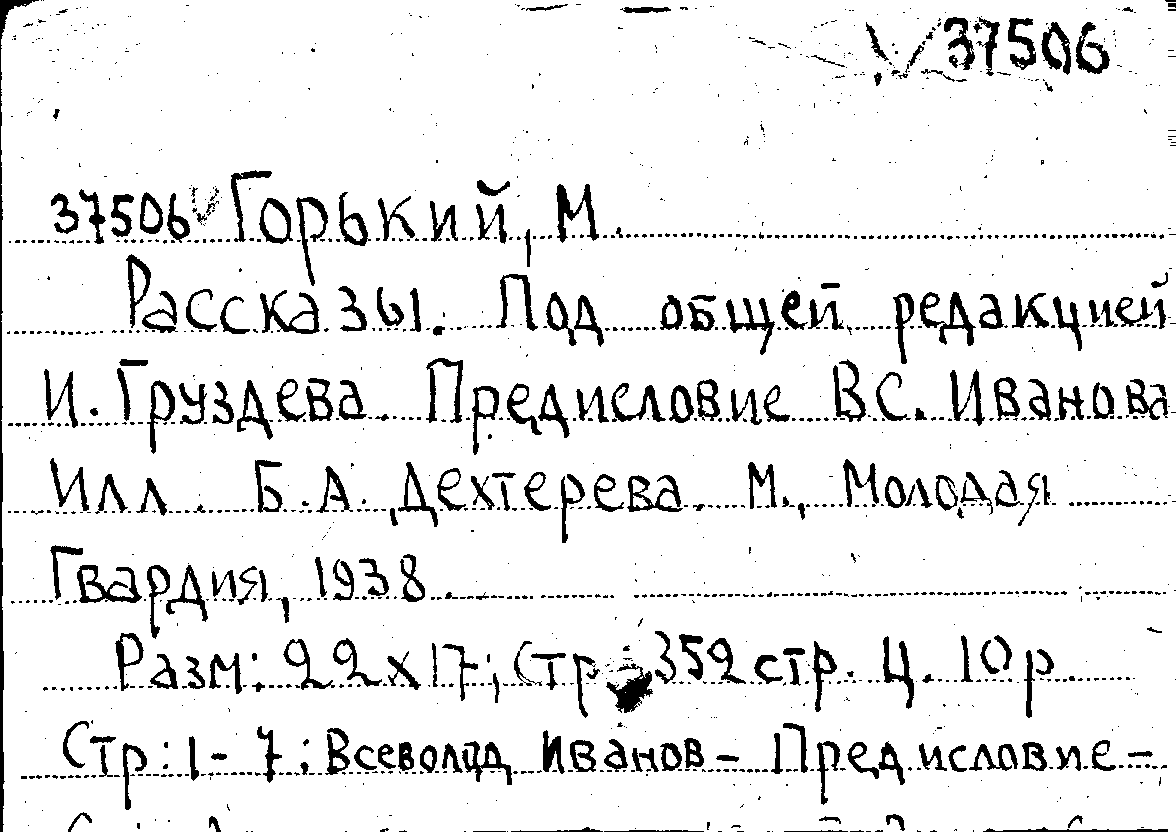 37506
37506 Горький, М.
Рассказы. Под общей редакцией
И. Груздева. Предисловие ВС. Иванова
Илл. Б.А. Дехтерева. М., Молодая
Гвардия, 1938.
Разм: 22х17; Стр 352 стр. Ц. 10 р.
Стр: 1-7: Всеволод Иванов - Предисловие -